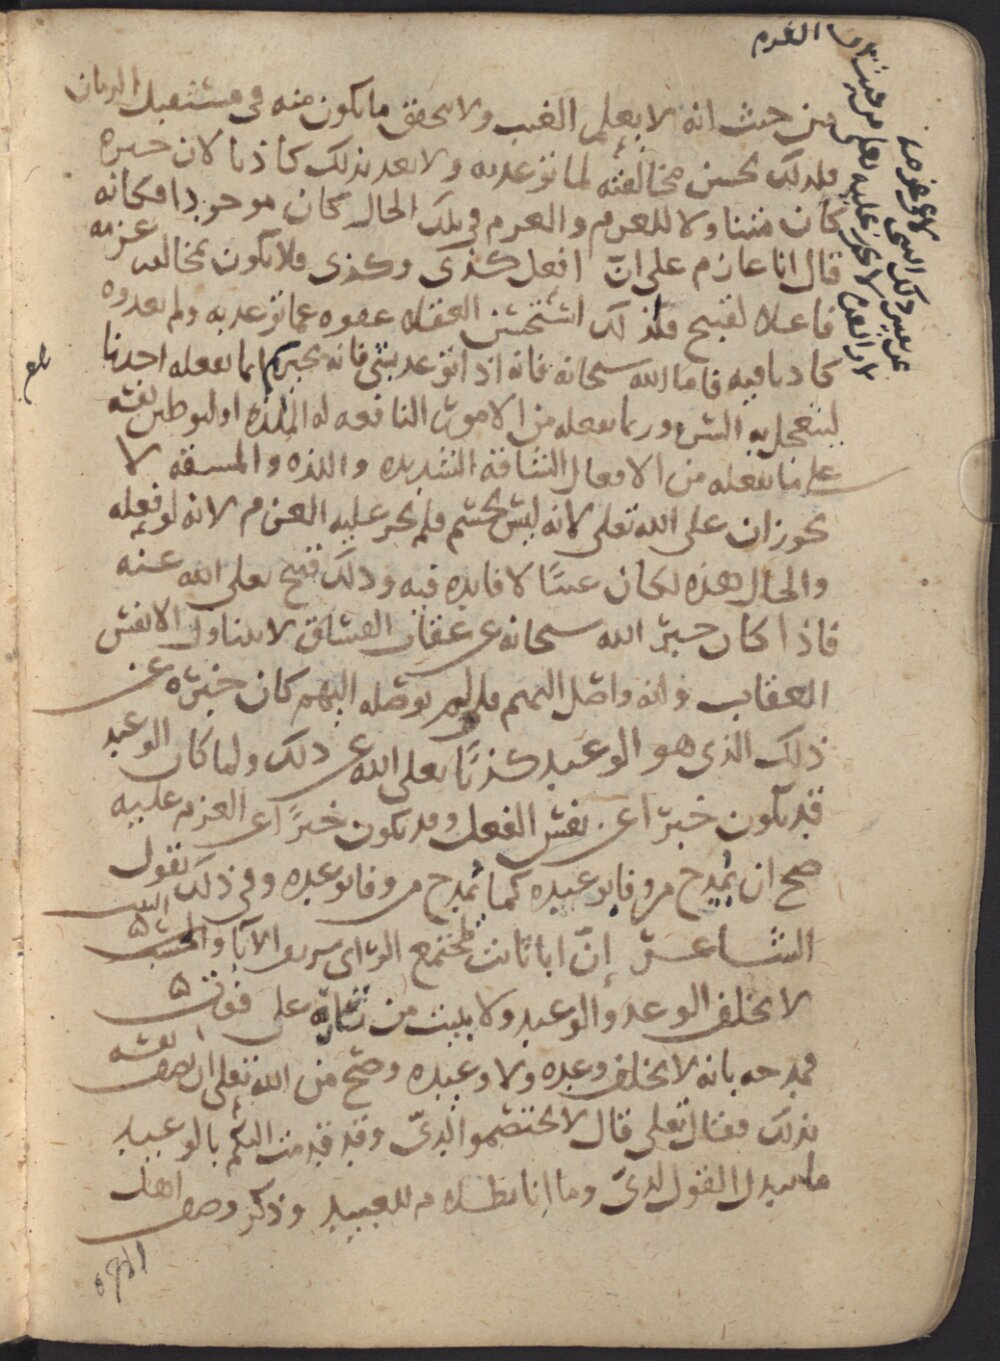 من حيث انه لا يعلم الغيب ولا يحقق ما يكون منه في مستقبل الزمان
فلذلك يحسن مخالفته لما توعد به ولا يعد بذلك كاذبا لان خبره
كان متناولا للعزم والعزم في تلك الحال كان موجودا فكانه
قال انا عازم على انّ افعل كذى وكذى فلا يكون بخالف عزمه
فاعلا لقبيح فلذلك استحسن العقلاء عفوه عما توعد به ولم يعدوه
كاذبا فيه فاما الله سبحانه فانه اذا توعد بشي فانه
لا يفعله احدنا
ليتعجل به السرور وربما يفعله من الامور النافعه له الملذه او ليوطن نفسه
على ما يفعله من الافعال الشاقة الشديده واللذه والمسقه لا
يجوزان على الله تعلى لانه ليس بجسم فلم يجز عليه العزم لانه لو فعله
والحال هذه لكان عبثًا لا فايده فيه وذلك قبيح تعلى الله عنه
فاذا كان خبر الله سبحانه عن عقاب الفساق لا يتناول الا نفس
العقاب وانه واصل اليهم فلو لم يوصله اليهم كان خبره عن
ذلك الذي هو الوعيد كذبًا تعلى الله عن ذلك ولما كان الوعيد
قد يكون خبرًا عن نفس الفعل وقد يكون خبرًا عن العزم عليه
صح ان يُمدح من وفا بوعيده كما يُمدح من وفا بوعده وفي ذلك يقول
الشاعر إنّ ابا ثابت لمجتمع الراى شريف الآبا والبيت
لا يخلف الوعد والوعيد ولا يبيت من ثاره على فوت
فمدحه بانه لا يخلف وعده ولا وعيده وصح من الله تعلى ان يصف نفسه
بذلك فقال تعلى قال لا تختصموا لديّ وقد قدمت اليكم بالوعيد
ما يبدل القول لديّ وما انا بظلام للعبيد وذكر وصف اهل